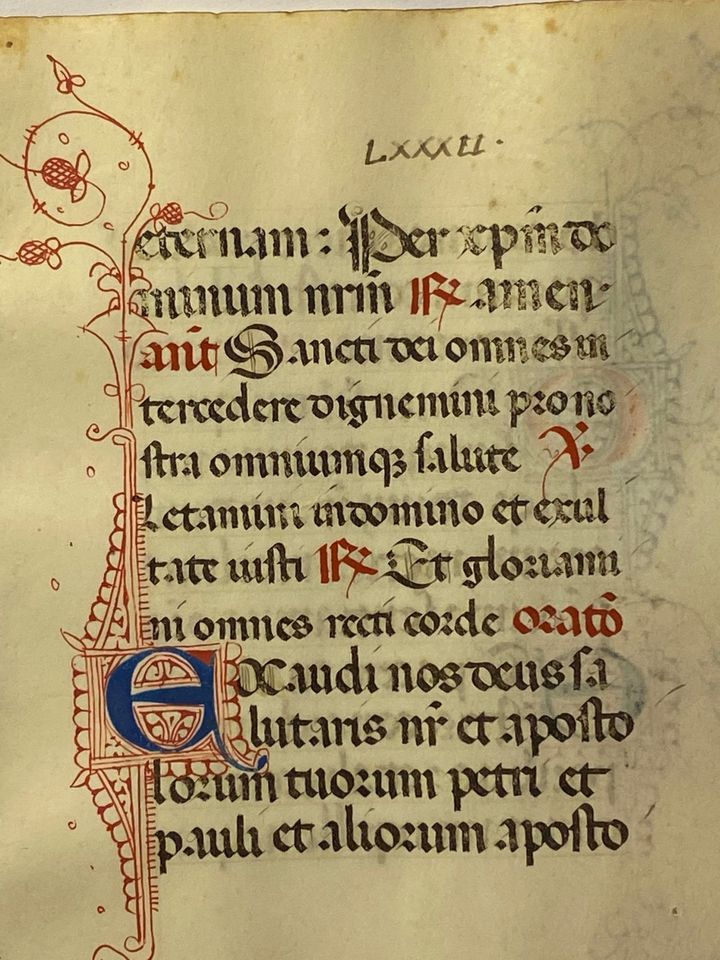 LXXXII·
eternam: Per xp̄m do
minum nr̄m ℟ amen·
añt Sancti dei omnes in
tercedere dignemini pro no
stra omniumqꝫ salute ℣
Letamini in domino et exul
tate iusti ℟ Et gloriami
ni omnes recti corde oratō
EXaudi nos deus sa
lutaris nr̄ et aposto
lorum tuorum petri et
pauli et aliorum aposto